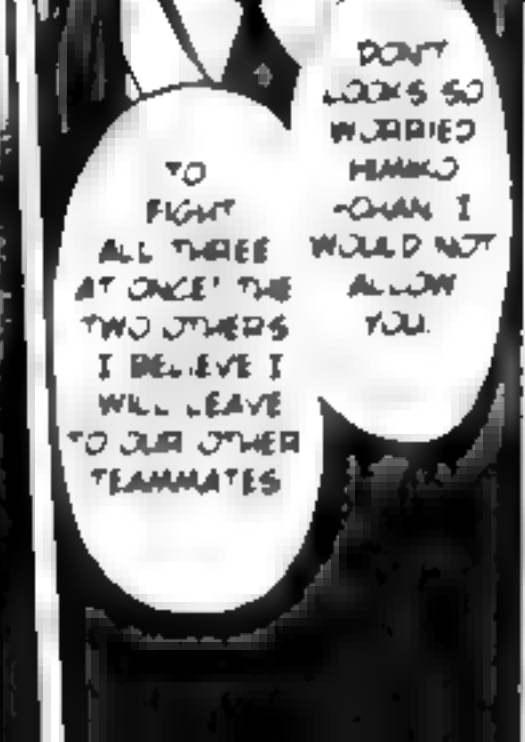 DON'T
LOOKS SO
WORRIED
HIMIKO
-CHAN I
WOULD NOT
ALLOW
YOU.
TO
FIGHT
ALL THREE
AT ONCE! THE
TWO OTHERS
I BELIEVE I
WILL LEAVE
TO OUR OTHER
TEAMMATES